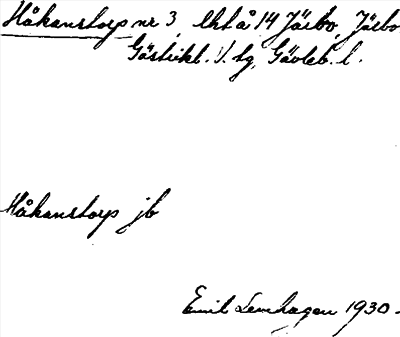 Håkanstorp nr 3, lht å 14 Järbo, Järbo
Gästrikl. V. tg, Gävleb. l.
Håkanstorp jb
Emil Lemhagen 1930.